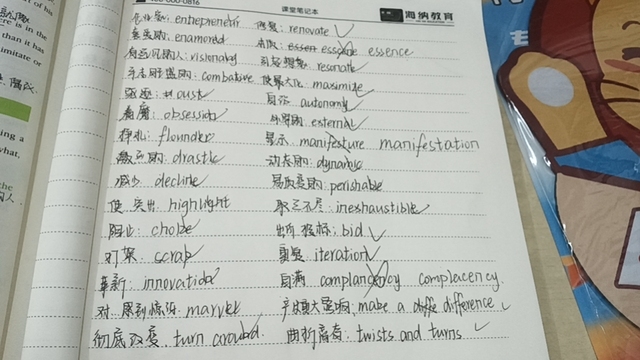 400-000-0816
课堂笔记本
海纳教育
企业家: entrepreneur 修复: renovate
喜爱的: enamored 本质: essence essence
有远见的人: visionary 引起想象: resonate
combative 使最大化 maximize
oust 自治 autonomy
着魔: obsession 外部的 external
挣扎: flounder 显示 manifesture manifestation
激烈的: drastic 动态的: dynamic
减少 decline 易腐变的: perishable
使突出 highlight 取之不尽: inexhaustible
阻止: choke 出价 投标: bid
打架: scrap 重复 iteration
革新: innovation 自满 complacency
对…感到惊讶: marvel make a difference
彻底改变: turn around 曲折离奇: twists and turns
than it has
imitate or
ing a
what.